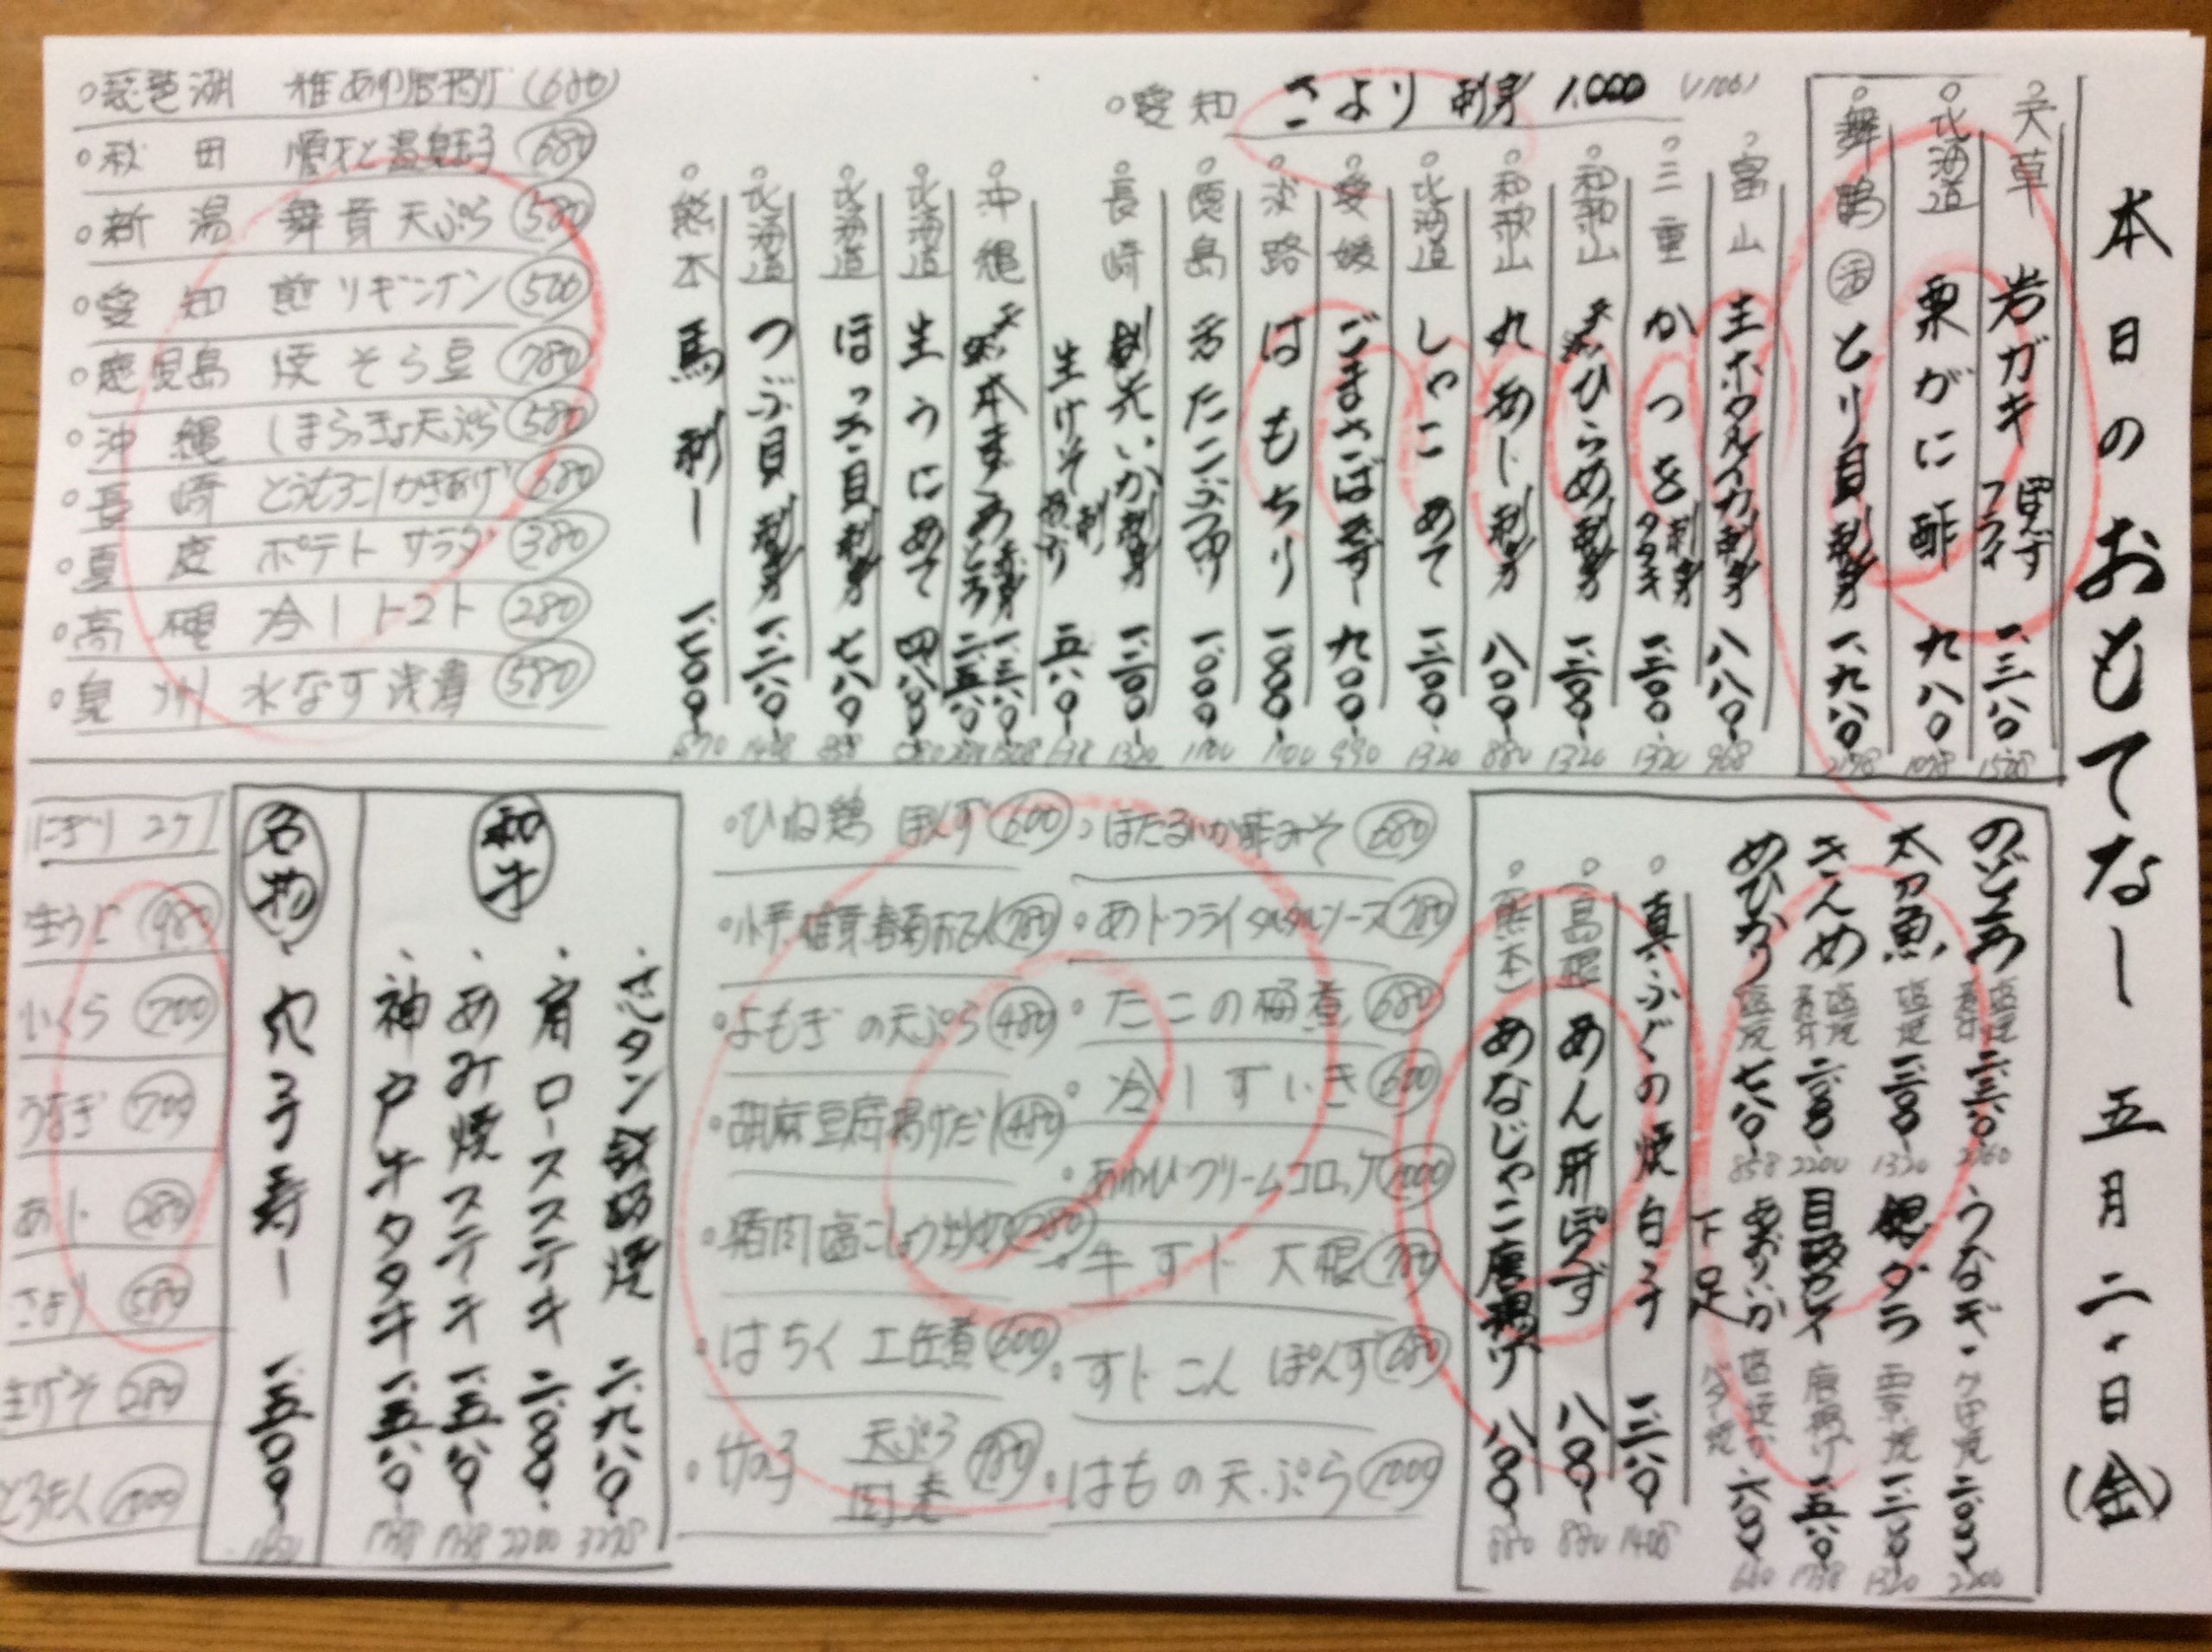 本日のおもてなし 五月二十日(金)
天草 岩ガキ ぽんず フライ 一、三八〇 1518
北海道 栗がに酢 九八〇 1078
舞鶴 活 とり貝 刺身 一、九八〇 2178
愛知 さより 刺身 1,000 (1100)
富山 生ホタルイカ刺身 八八〇 968
三重 かつを 刺身 タタキ 一、二〇〇 1320
和歌山 ひらめ刺身 一、二〇〇 1320
和歌山 丸あじ 刺身 八〇〇 880
北海道 しゃこ あて 一、二〇〇 1320
愛媛 ごまさば きずし 九〇〇 990
淡路 はも ちり 一、〇〇〇 1100
徳島 活たこぶつ切り 一、〇〇〇 1100
長崎 剣先いか刺身 一、二〇〇 1320
生げそ 刺 五八〇 638
沖縄 本まぐろ 赤身 一、三八〇 とろ 二、五八〇
北海道 生うに あて
北海道 ほっき貝 刺身 七八〇 858
北海道 つぶ貝 刺身 一、二八〇 1408
熊本 馬刺し
琵琶湖 稚あゆ唐揚げ (680)
秋田 じゅん菜と温泉玉子 680
新潟 舞茸天ぷら 580
愛知 煎りギンナン 500
鹿児島 焼そら豆 780
沖縄 しまらっきょ天ぷら 580
長崎 とうもろこしかきあげ 680
ポテトサラダ 380
高知 冷しトマト 280
泉州 水なす浅漬 580
のどぐろ 塩焼 煮付 2360
太刀魚 塩焼 一、二〇〇 1320
きんめ 塩焼 煮付 二、〇〇〇 2200
めひかり 塩焼 七八〇 858
うなぎ 白焼 二、〇〇〇 2200
銀ダラ 西京焼 一、二〇〇 1320
目板カレイ 唐揚げ 一、五八〇 1738
あおりいか 下足 塩焼 バター焼 六〇〇 660
真ふぐの焼白子 一、二八〇 1408
島根 あん肝ぽんず 八〇〇 880
熊本 あなじゃこ唐揚げ 八〇〇 880
ほたるいか酢みそ 680
あじフライ タルタルソース 780
たこの柔煮 680
冷しずいき 600
あわびクリームコロッケ 1000
牛すじ大根 780
すじこん ぽんず 680
はもの天ぷら 1000
ひね鶏 ぽんず 600
よもぎの天ぷら 480
胡麻豆腐揚げだし 480
猪肉塩こしょう炒め
はちく 土佐煮 600
竹の子 天ぷら 780
和牛
・さがりタン鉄板焼 二、九八〇 3278
・肩ロースステーキ 二、〇〇〇 2200
・あみ焼ステーキ 一、五八〇 1738
・神戸牛タタキ 一、五八〇 1738
名物 穴子寿し 一、五〇〇
にぎり 2ケ
生うに 980
いくら 700
うなぎ 700
あじ 280
さより 580
生げそ 280
とろたく